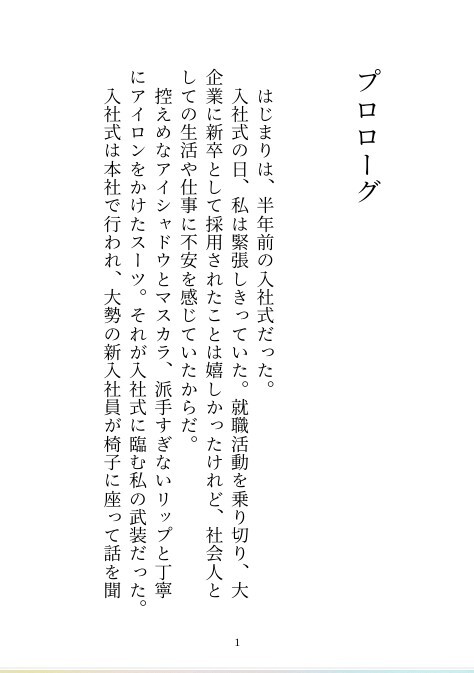 プロローグ
はじまりは、半年前の入社式だった。
入社式の日、私は緊張しきっていた。就職活動を乗り切り、大
企業に新卒として採用されたことは嬉しかったけれど、社会人と
しての生活や仕事に不安を感じていたからだ。
控えめなアイシャドウとマスカラ、派手すぎないリップと丁寧
にアイロンをかけたスーツ。それが入社式に臨む私の武装だった。
入社式は本社で行われ、大勢の新入社員が椅子に座って話を聞
1